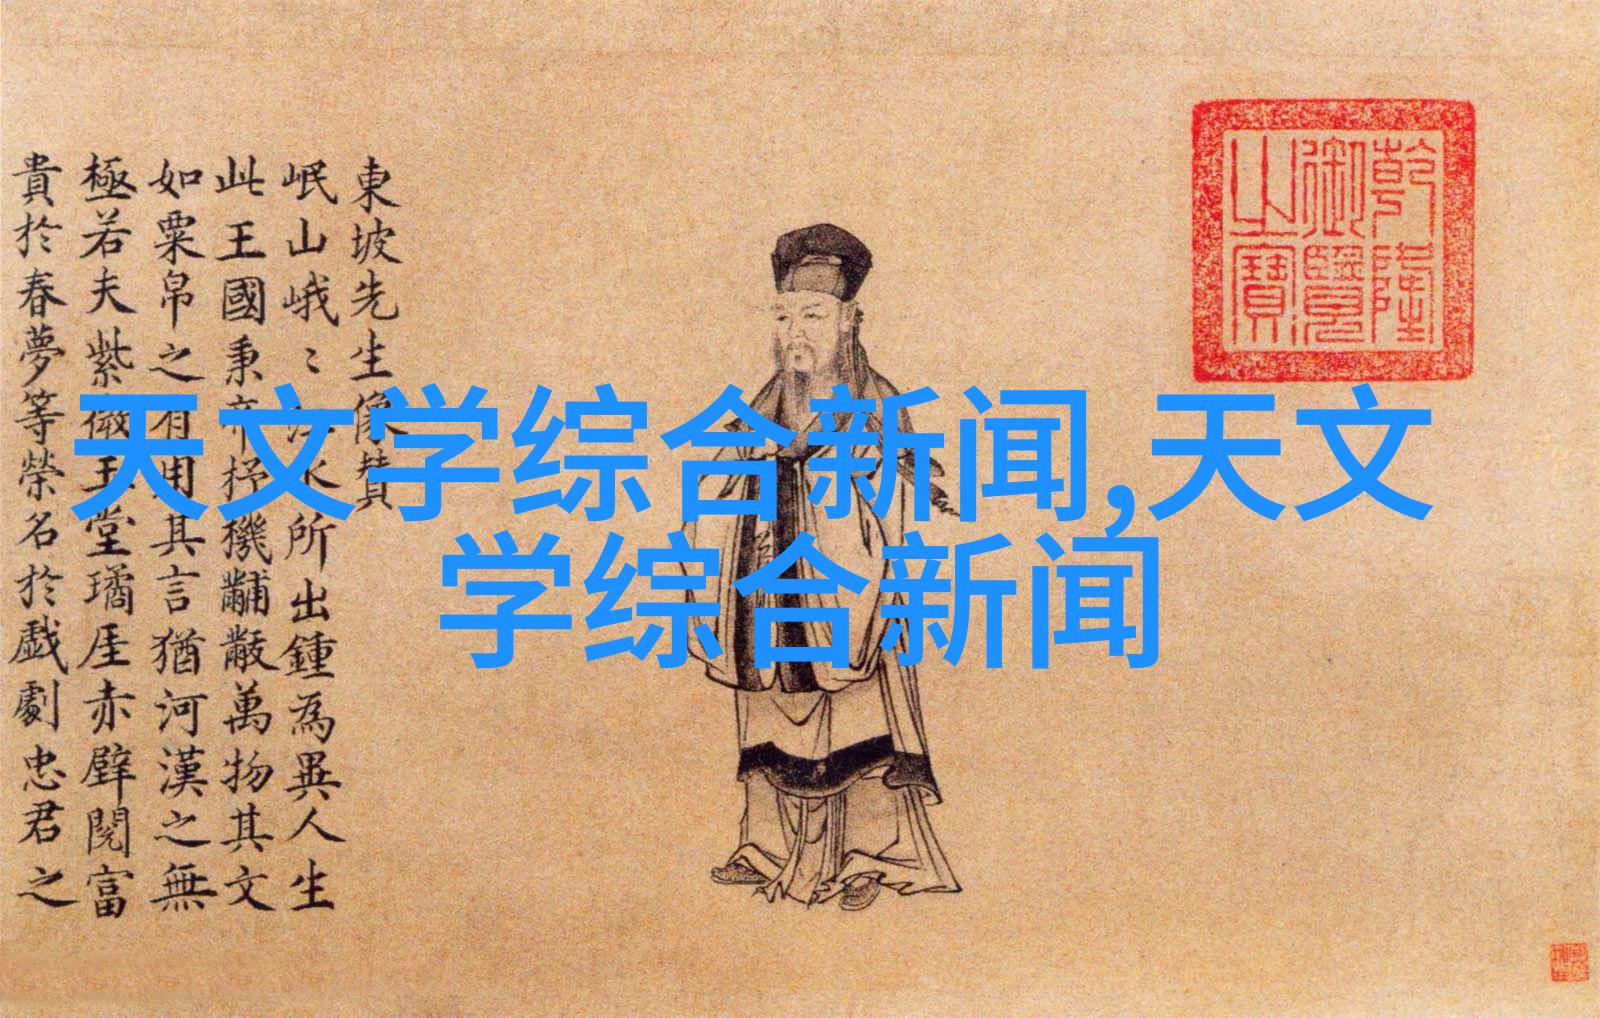 天文学综合新闻,天文
学综合新闻
乾隆
御覽
之寶
東坡先生像贊
岷山峨〻江水所出鍾為異人生
此王國秉帝杼機黼黻萬物其文
如粟帛之有用其言猶河漢之無
極若夫紫微玉堂璚厓赤壁閱富
貴於春夢等榮名於戲劇忠君之